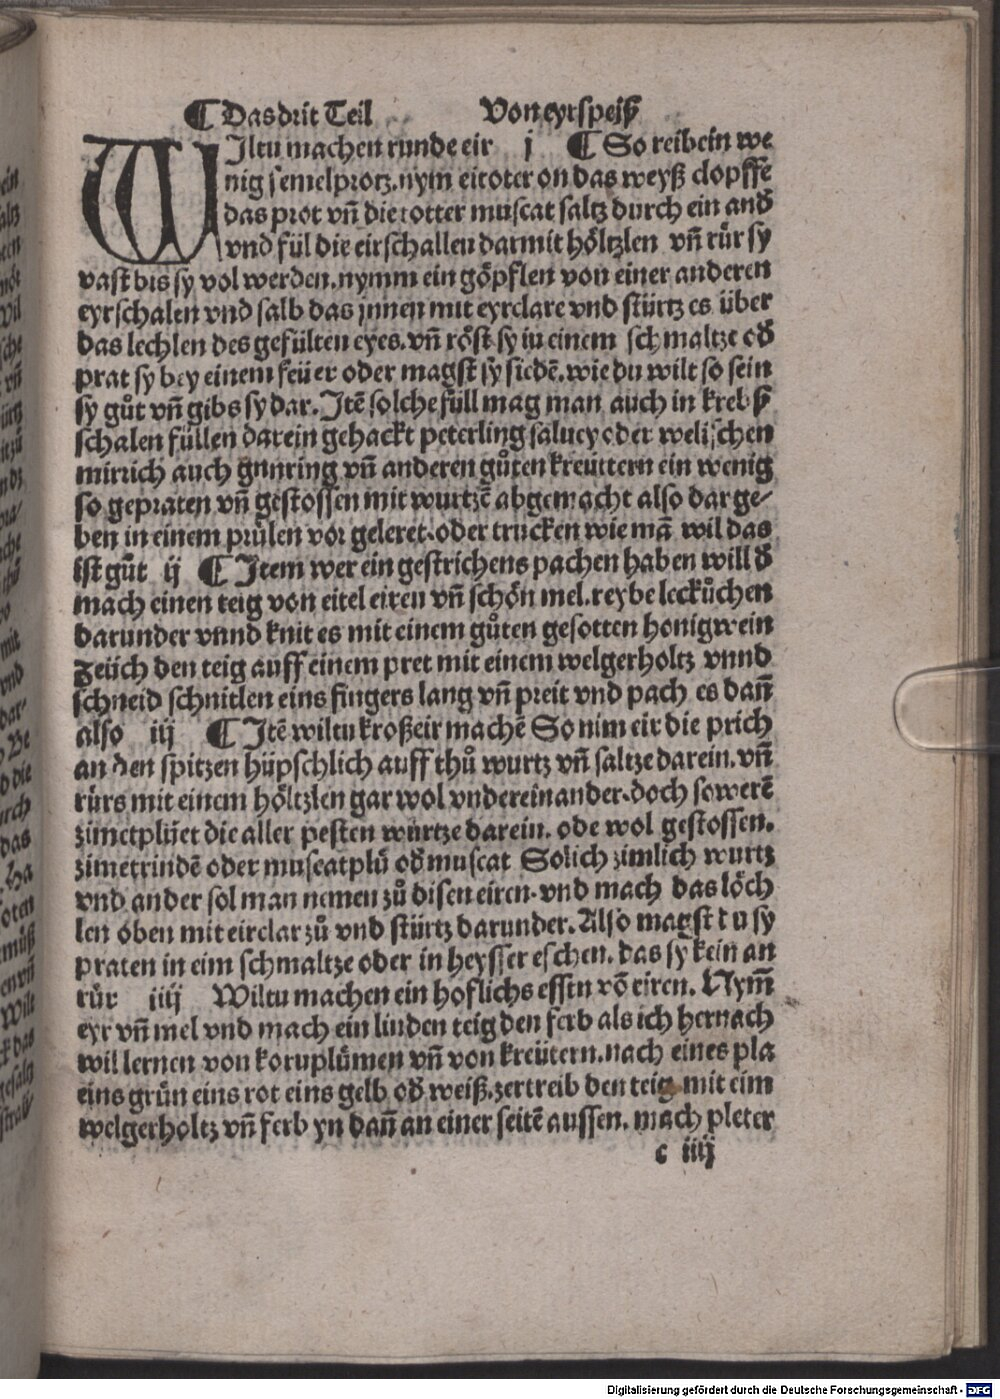 ¶ Das drit Teil Von eyrspeiß
WIltu machen runde eir j ¶ So reib ein we
nig semelprotz. nym eitoter on das weyß clopffe
das prot vñ die totter muscat saltz durch ein and
vnd fül die eirschallen darmit höltzlen vñ rür sy
vast bis sy vol werden. nymm ein göpflen von einer anderen
eyrschalen vnd salb das jnnen mit eyrclare vnd stürtz es über
das lechlen des gefülten eyes. vñ röst sy in einem schmaltze od
prat sy bey einem feüer oder magst sy siedē. wie du wilt so sein
sy gůt vñ gibs sy dar. Itē solche füll mag man auch in krebß
schalen füllen darein gehackt peterling saluey oder welischen
mirrich auch gunring vñ anderen gůten kreüttern ein wenig
so gepraten vñ gestossen mit wurtzē abgemacht also dar ge-
ben in einem prülen vor geleret. oder trucken wie mā wil das
ist gůt ij ¶ Item wer ein gestrichens pachen haben will d
mach einen teig von eitel eiren vñ schön mel. reybe leckůchen
darunder vnnd knit es mit einem gůten gesotten honigwein
zeüch den teig auff einem pret mit einem welgerholtz vnnd
schneid schnitlen eins fingers lang vñ preit vnd pach es dañ
also iij ¶ Itē wiltu kroßeir machē So nim eir die prich
an den spitzen hüpschlich auff thů wurtz vñ saltze darein. vñ
rürs mit einem höltzlen gar wol vndereinander. doch so werē
zimetplüet die aller pesten würtze darein. ode wol gestossen.
zimetrindē oder muscatplů od muscat Solich zimlich wurtz
vnd ander sol man nemen zů disen eiren. vnd mach das löch
len oben mit eirclar zů vnd stürtz darunder. Also magst du sy
praten in eim schmaltze oder in heysser eschen. das sy kein an
rür iiij Wiltu machen ein hoflichs essen vō eiren. Nym̃
eyr vñ mel vnd mach ein linden teig den ferb als ich hernach
wil lernen von kornplůmen vñ von kreütern. nach eines pla
eins grün eins rot eins gelb od weiß. zertreib den teig mit eim
welgerholtz vñ ferb yn dañ an einer seitē aussen. mach pleter
c iiij
Digitalisierung gefördert durch die Deutsche Forschungsgemeinschaft - DFG